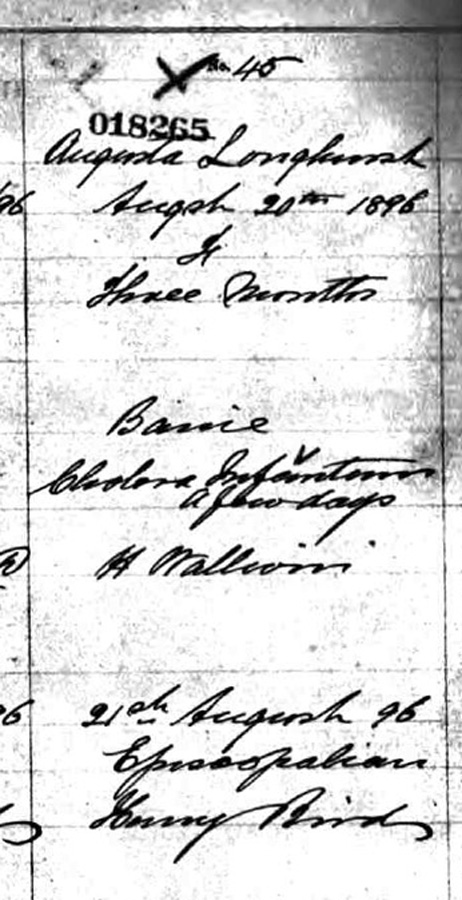 No. 45
018265
Augusta Longhurst
August 20th 1896
F
Three Months
Barrie
Cholera Infantum
a few days
H
21st August 96
Episcopalian
Henry Bird